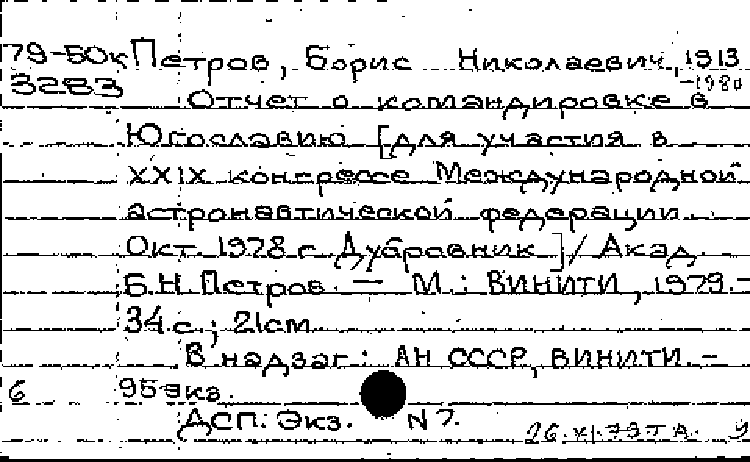 79-50к Петров, Борис Николаевич, 1913
3283 -1980
Отчет о командировке в
Югославию [для участия в
XXIX конгрессе Международной
астронавтической федерации.
Окт. 1978 г. Дубровник] / Акад.
Б.Н. Петров. — М.: ВИНИТИ, 1979.-
34 с.; 21см.
В надзаг.: АН СССР, ВИНИТИ. -
6 95 экз.
ДСП: Экз. N 7.
26.XI.79 T A.